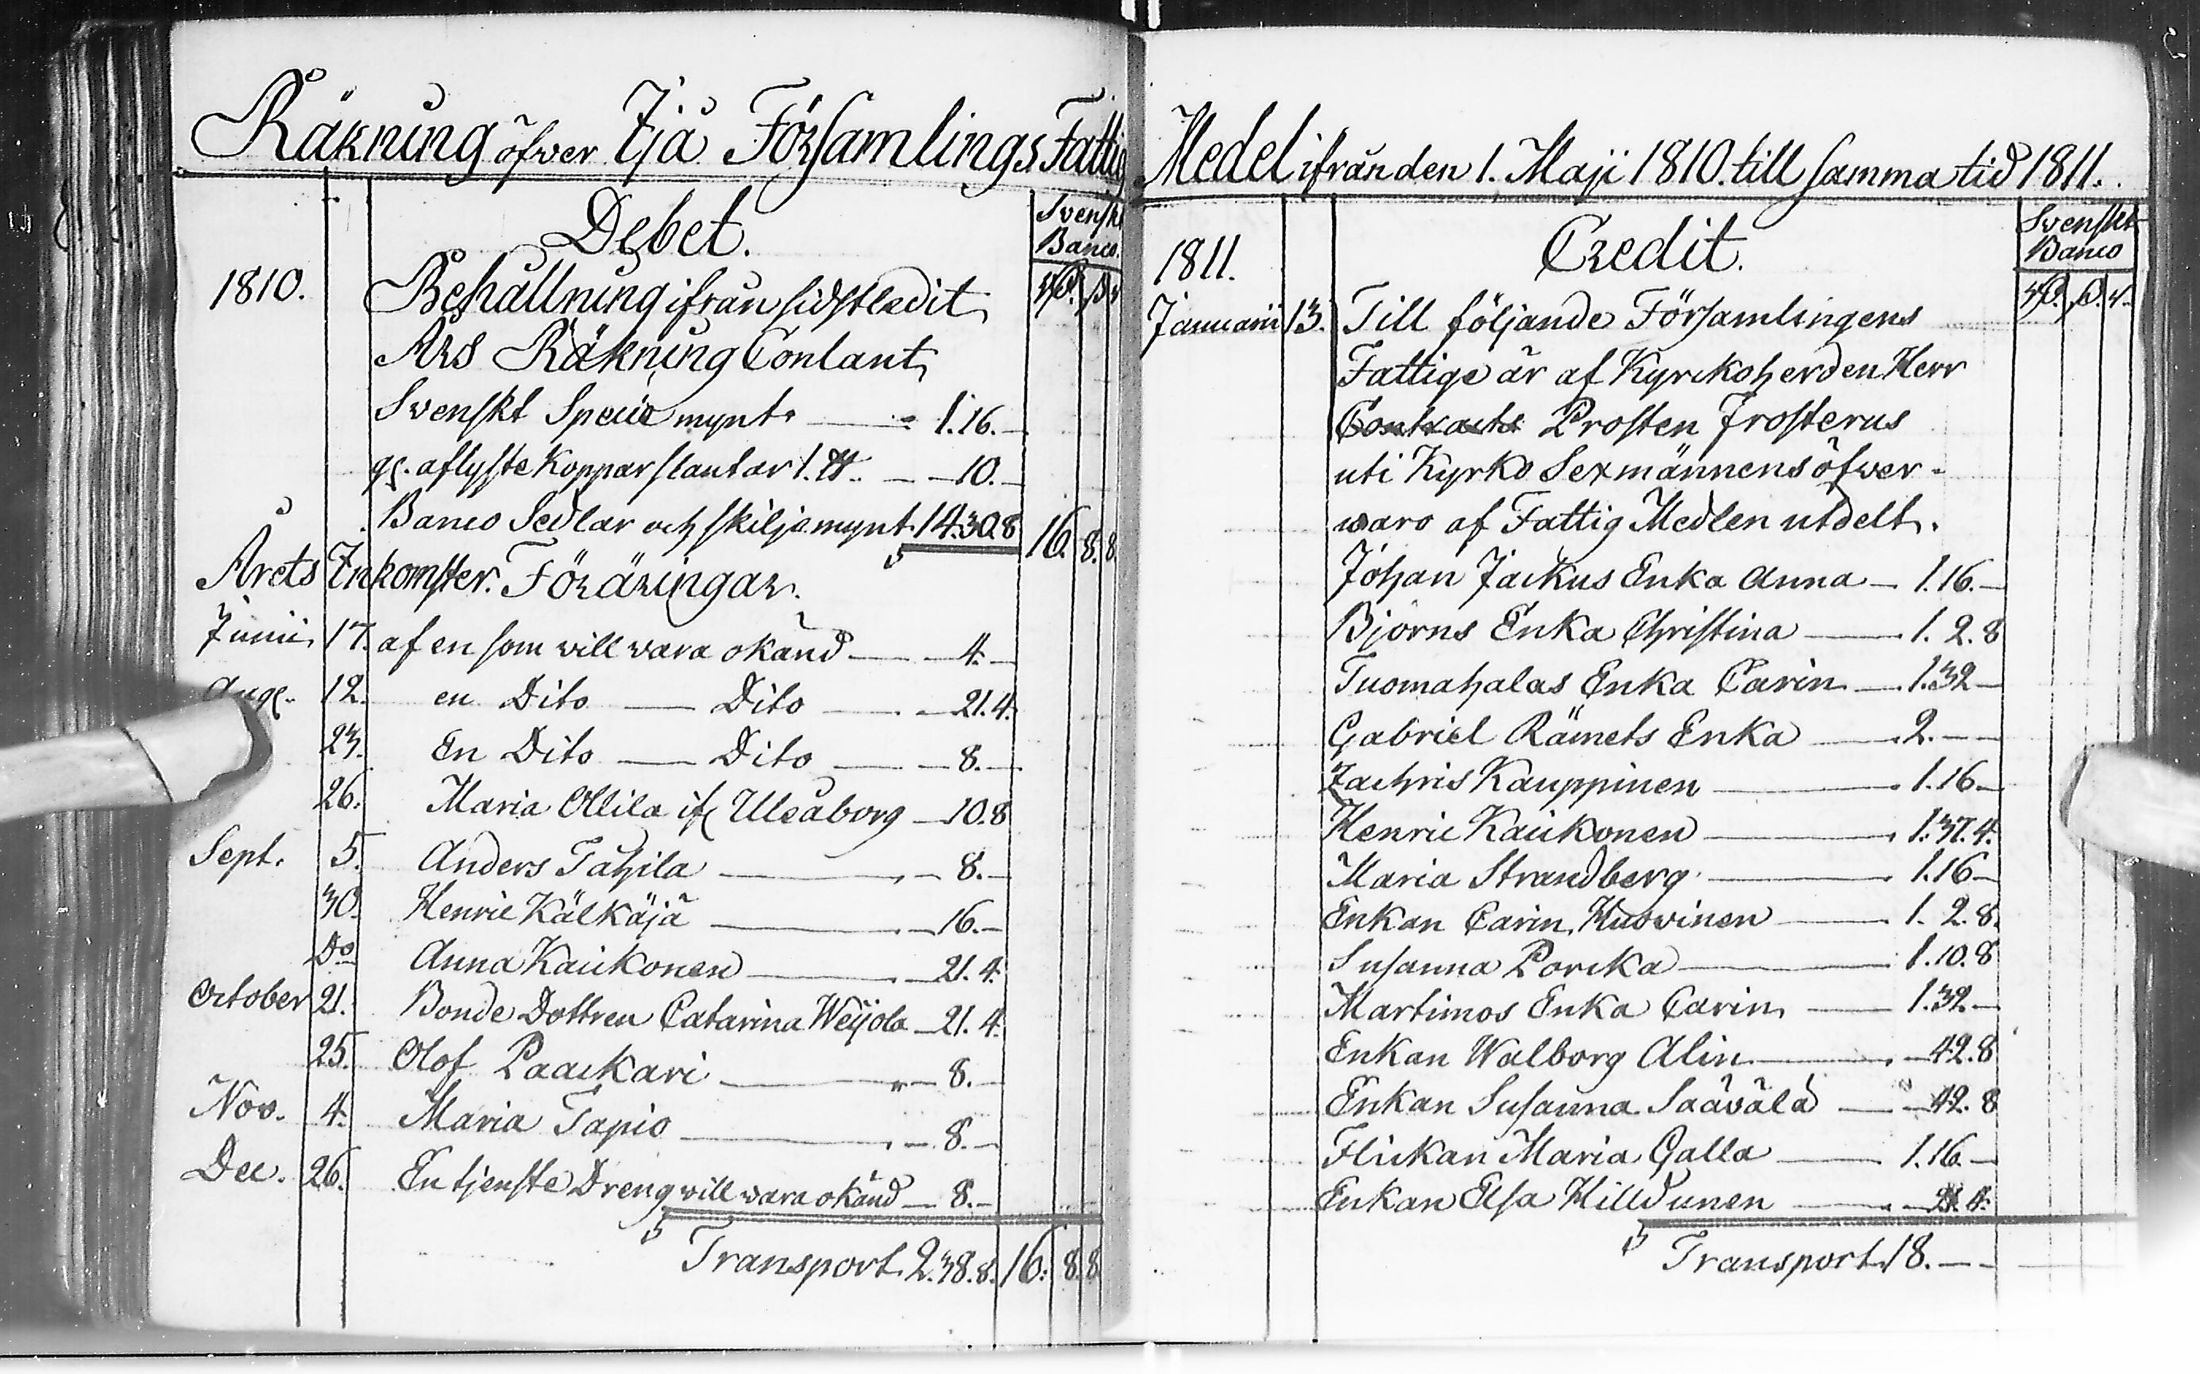 Räkning öfwer Ijå Församlings Fattig
Debet.
Svenskt
Banco.
1810. Behållning ifrån sidstledit
Års Räkning Contant
Svenskt Specie mynt 1.16.
gl. aflyste Kopparslantar 1. 10.
Banco Sedlar och skiljemynt 14.30.8 16. 8. 8.
Årets Inkomster. Föräringar.
Junii 17. af en som will wara okänd 4.
Aug. 12. en Dito Dito 21.4.
23. En Dito Dito 8.
26. Maria Ollila if Uleåborg 10.8
Sept. 5. Anders Tahila 8.
30. Henric Kälkäjä 16.
Do Anna Kaickonen 21.4.
October 21. Bonde Dottren Catarina Weijola 21.4.
25. Olof Paackari 8.
Nov. 4. Maria Tapio 8.
Dec. 26. En tjenste Dreng will wara okänd 8.
Transport 2.38.8. 16. 8. 8
Medel ifrån den 1. Maji 1810. till samma tid 1811.
Credit.
Svenskt
Banco
1811.
Januarii 13. Till följande Församlingens
Fattige är af Kyrckoherden Herr
Contracts Prosten Frosterus
uti Kyrko Sexmännens öfwer-
waro af Fattig Medlen utdelt.
Johan Jackus Enka Anna 1.16.
Björns Enka Christina 1. 2. 8
Tuomahalas Enka Carin 1.32
Gabriel Rämets Enka 2.
Zachris Kauppinen 1.16
Henric Kaickonen 1.37.4.
Maria Strandberg 1.16
Enkan Carin Huovinen 1. 2. 8.
Susanna Porcka 1.10.8
Martimos Enka Carin 1.32
Enkan Walborg Alin 42.8
Enkan Susanna Säävälä 42.8
Flickan Maria Galla 1.16.
Enkan Elsa Hilldunen 21.4.
Transport 18.